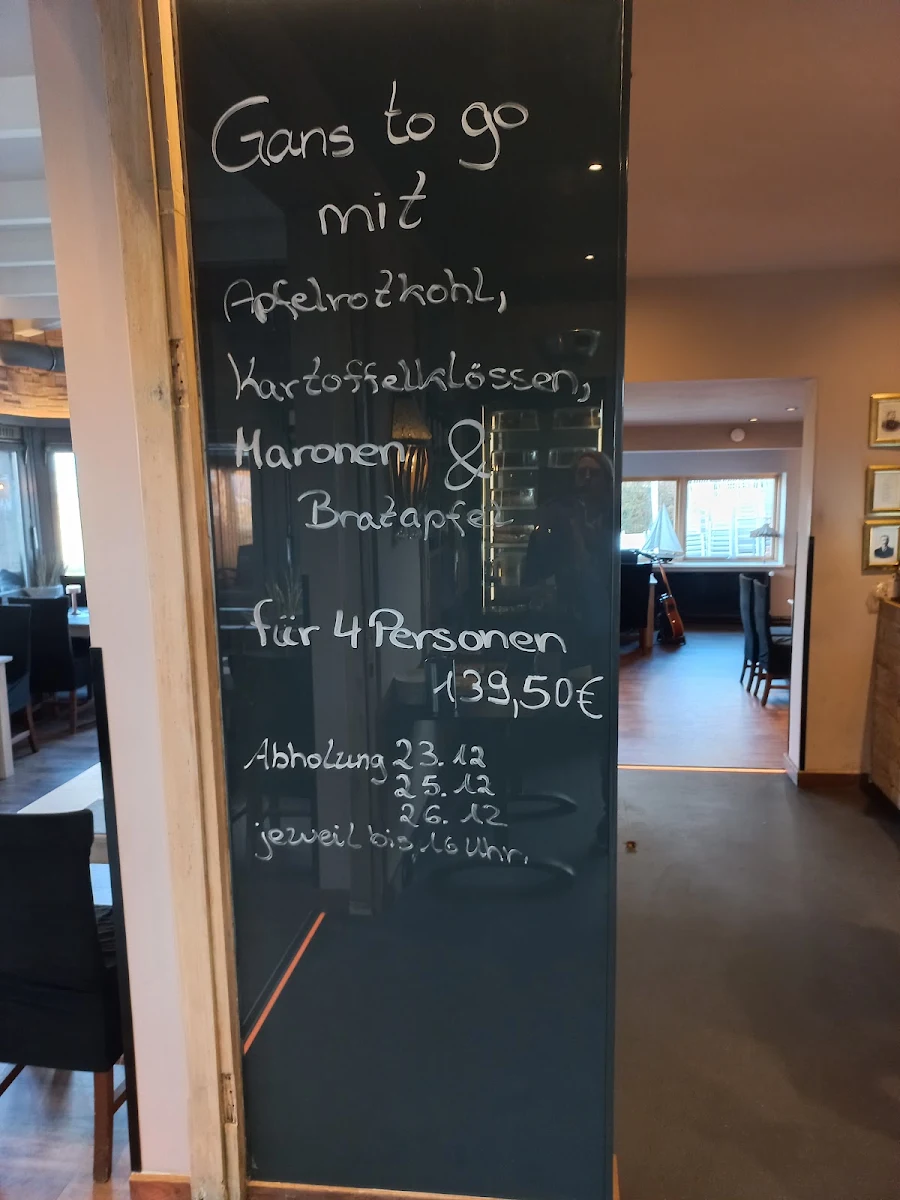 Gans to go
mit
Apfelrotkohl,
Kartoffelklössen,
Maronen &
Bratapfel
für 4 Personen
139,50€
Abholung 23.12
25.12
26.12
jeweil bis 16 Uhr.